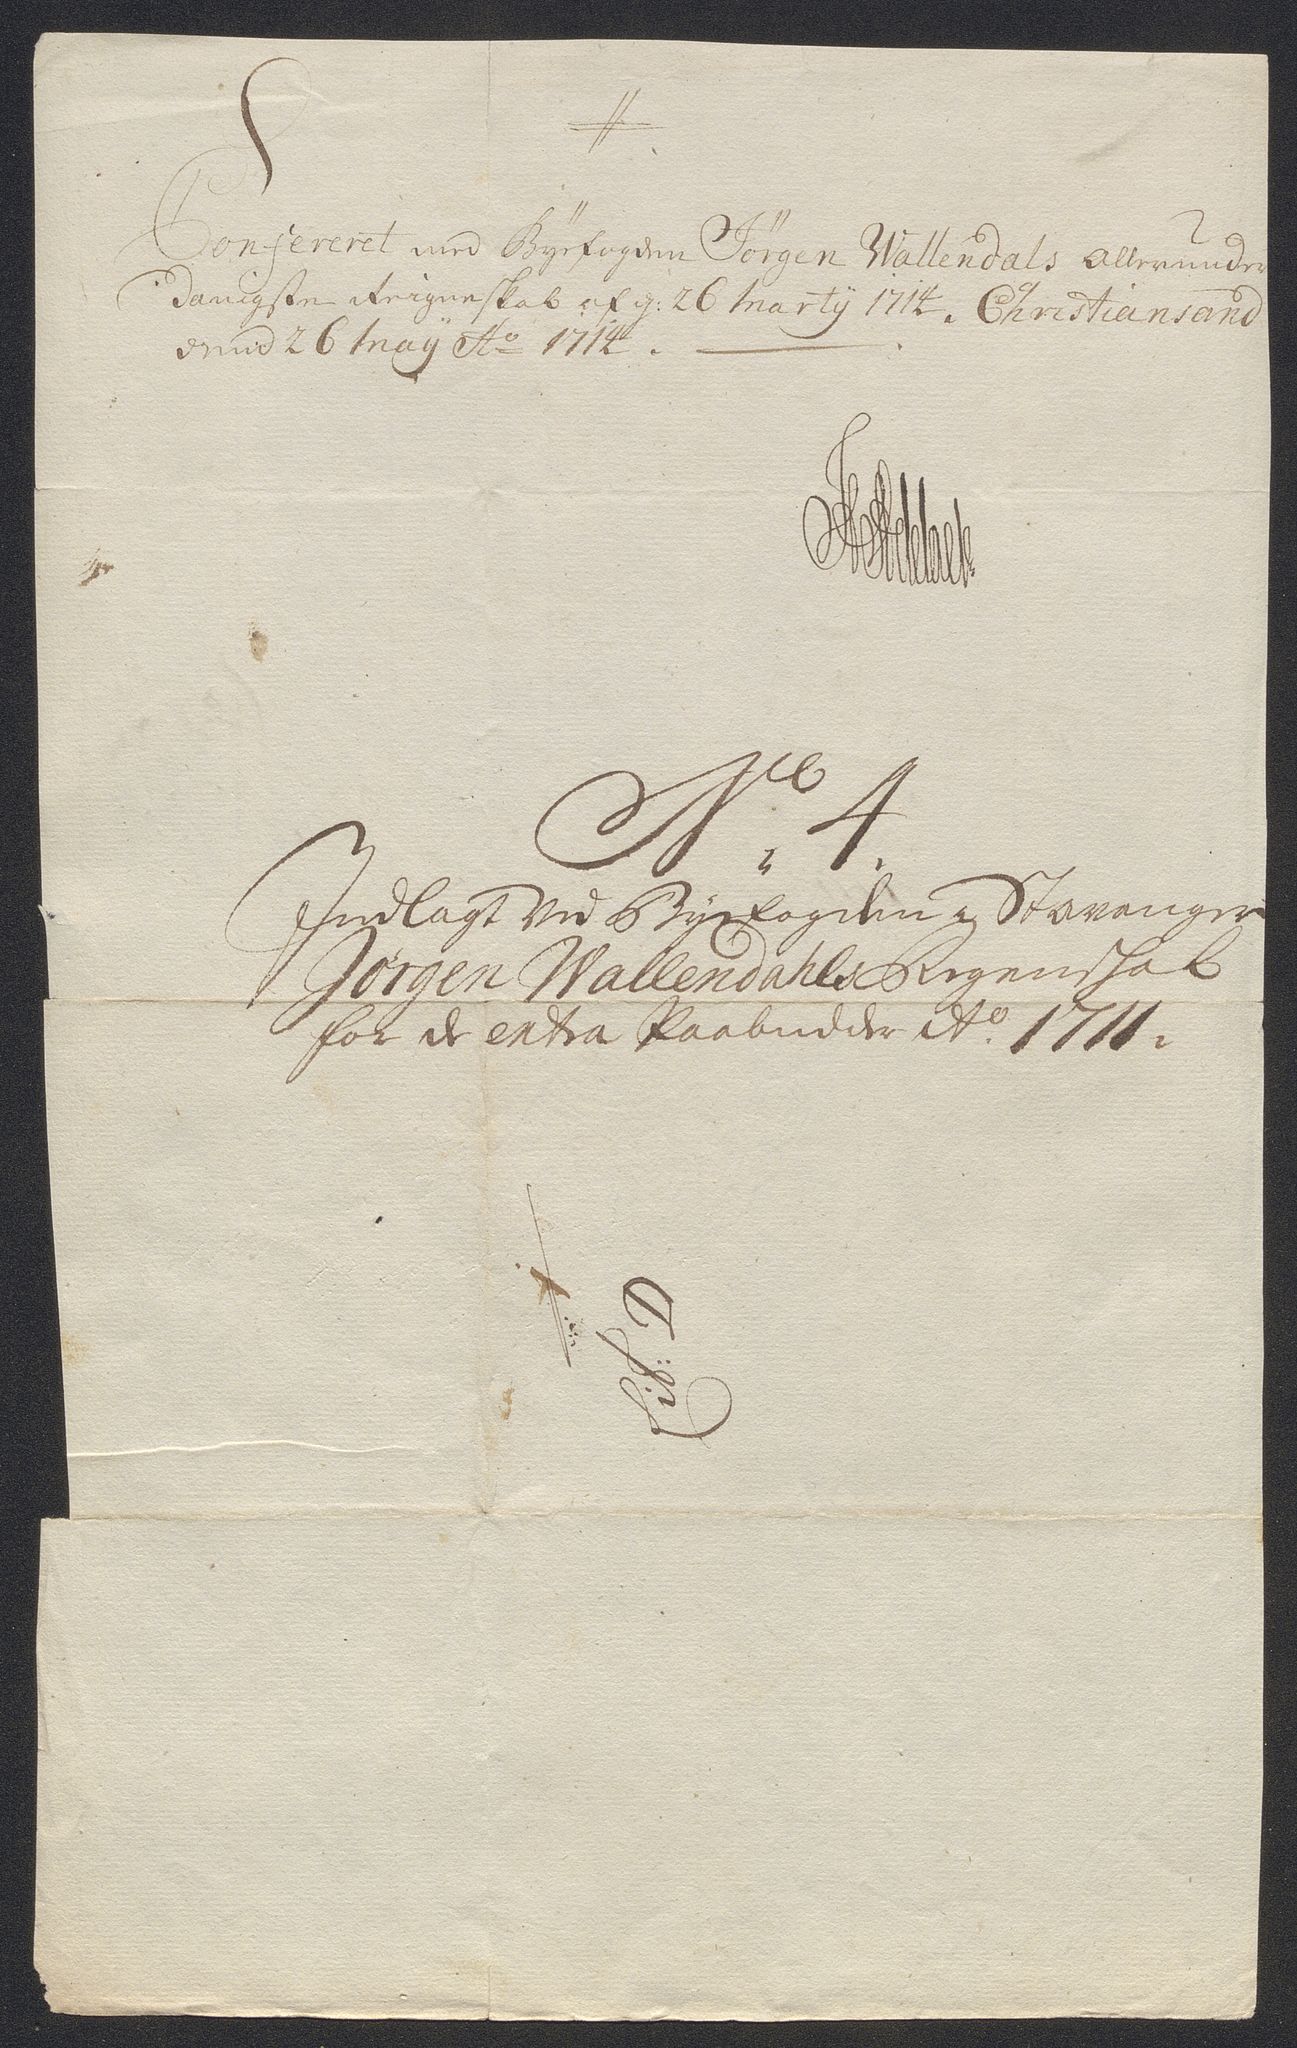 Confereret med Byefogden Jørgen Wallendals allerunder
danigste Reigneskab af d: 26 Marty 1714. Christiansand
dend 26 May Ao 1714.
No. 4.
Indlagt ved Byefogden i Stavanger
Jørgen Wallendahls Regenschab
for de extra Paabudder Ao. 1711.